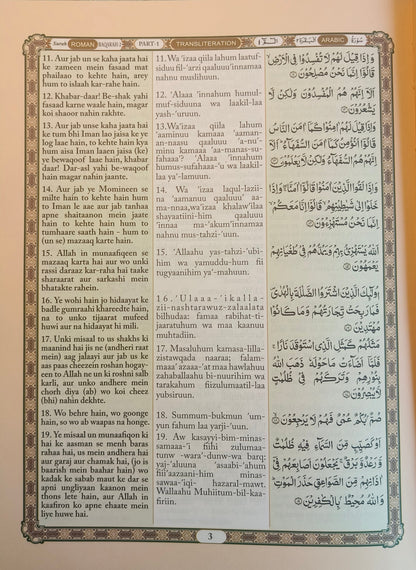 Surah ROMAN BAQARAH-2
PART-1
TRANSLITERATION
ARABIC
11. Aur jab un se kaha jaata hai
ke zameen mein fasaad mat
phailaao to kehte hain, arey
hum to islaah kar-rahe hain.
12. Khabar-daar! Be-shak yahi
fasaad karne waale hain, magar
koi shaoor nahin rakhte.
13. Aur jab unse kaha jaata hai
ke tum bhi Imaan lao jaisa ke ye
log laae hain, to kehte hain kya
hum aisa Imaan laaen jaisa (ke)
ye bewaqoof laae hain, khabar
daar! Dar-asl yahi be-waqoof
hain magar nahin jaante.
14. Aur jab ye Momineen se
milte hain to kehte hain hum
to Imaan le aae aur jab tanhaa
apne shaitaanon mein jaate
hain to kehte hain hum to
tumhaare saath hain - hum
(un se) mazaaq karte hain.
15. Allah in munaafiqeen se
mazaaq karta hai aur wo unki
rassi daraaz kar-raha hai taake
sharaarat aur sarkashi mein
bhatakte rahein.
16. Ye wohi hain jo hidaayat ke
badle gumraahi khareedte hain,
na to unko tijaarat mufeed
huwi aur na hidaayat hi mili.
17. Unki misaal to us shakhs ki
maanind hai jis ne (andheri raat
mein) aag jalaayi aur jab us ke
aas paas cheezein roshan hogay-
een to Allah ne un ki roshni salb
karli, aur unko andhere mein
chorh diya (ab) wo koi cheez
(bhi) nahin dekhte.
18. Wo behre hain, wo goonge
hain, so wo ab waapas na honge.
19. Ye misaal un munaafiqon ki
hai ke aasman se menh baras
rahaa hai, us mein andhera hai
aur garaj aur chamak hai, (jo is
baarish mein baahar hain) wo
kadak ke sabab maut ke dar se
apni ungliyaan kaanon mein
thons lete hain, aur Allah in
kaafiron ko apne ehaate mein
liye huwe hai.
11. Wa 'izaa qiila lahum laatuf-
siduu fil-'arzi qaaluuu 'innamaa
nahnu muslihuun.
12. 'Alaaa 'innahum humul-
muf-siduuna wa laakil-laa
yash-'uruun.
13.Wa'izaa qiila lahum
'aaminuu kamaaa 'aaman-
an-naasu qaaluuu 'a-nu'-
minu kamaaa 'aa-manas-su-
fahaaa? 'Alaaa 'innahum
humus-sufahaaa-'u wa laakil-
laa ya'-lamuun.
14. Wa 'izaa laqul-lazii-
na 'aamanuu qaaluuu 'aa-
ma-nnaa, wa 'izaa khalaw 'ilaa
shayaatiini-him qaaluuu
'innaa ma-'akum 'innamaa
nahnu mus-tahzi-'uun.
15. 'Allaahu yas-tahzi-'ubi-
him wa yamuddu-hum fii
tugyaanihim ya'-mahuun.
16. 'Ulaaa-'ikalla-
zii-nashtarawuz-zalaalata
bilhudaa: famaa rabihat-ti-
jaaratuhum wa maa kaanuu
muhtadiin.
17. Masaluhum kamasa-lilla-
zistawqada naaraa; falam-
maaa 'azaaa-'at maa hawlahuu
zahaballaahu bi-nuurihim wa
tarakahum fiizulumaatil-laa
yubsiruun.
18. Summum-bukmun 'um-
yun fahum laa yarji-'uun.
19. Aw kasayyi-bim-minas-
samaaa-'i fiihi zulumaa-
tunw -wara'-dunw-wa barq:
yaj-'aluuna 'asaabi-'ahum
fiii'aazaani-him minas-
sawaa-'iqi- hazaral-mawt.
Wallaahu Muhiitum-bil-kaa-
firiin.
وَإِذَا قِيلَ لَهُمْ لَا تُفْسِدُوا فِي الْأَرْضِ
قَالُوْٓا إِنَّمَا نَحْنُ مُصْلِحُونَ ۝
أَلَآ إِنَّهُمْ هُمُ الْمُفْسِدُونَ وَلَٰكِنْ لَّا
يَشْعُرُونَ ۝
وَإِذَا قِيلَ لَهُمْ اٰمِنُوا كَمَآ اٰمَنَ النَّاسُ
قَالُوْٓا أَنُؤْمِنُ كَمَآ اٰمَنَ السُّفَهَآءُ ۗ أَلَآ
إِنَّهُمْ هُمُ السُّفَهَآءُ وَلَٰكِنْ لَّا يَعْلَمُونَ ۝
وَإِذَا لَقُوا الَّذِينَ اٰمَنُوا قَالُوْٓا اٰمَنَّا ۖ وَإِذَا
خَلَوْا إِلَىٰ شَيٰطِينِهِمْ ۙ قَالُوْٓا إِنَّا مَعَكُمْ ۙ
إِنَّمَا نَحْنُ مُسْتَهْزِءُونَ ۝
اَللّٰهُ يَسْتَهْزِئُ بِهِمْ وَيَمُدُّهُمْ فِي طُغْيَانِهِمْ
يَعْمَهُونَ ۝
أُولَٰئِكَ الَّذِينَ اشْتَرَوُا الضَّلٰلَةَ بِالْهُدٰى
فَمَا رَبِحَتْ تِّجَارَتُهُمْ وَمَا كَانُوا
مُهْتَدِينَ ۝
مَثَلُهُمْ كَمَثَلِ الَّذِي اسْتَوْقَدَ نَارًا ۚ
فَلَمَّآ أَضَآءَتْ مَا حَوْلَهٗ ذَهَبَ اللّٰهُ
بِنُورِهِمْ وَتَرَكَهُمْ فِي ظُلُمٰتٍ
لَّا يُبْصِرُونَ ۝
صُمٌّۢ بُكْمٌ عُمْيٌ فَهُمْ لَا يَرْجِعُونَ ۝
أَوْ كَصَيِّبٍ مِّنَ السَّمَآءِ فِيهِ ظُلُمٰتٌ
وَّرَعْدٌ وَّبَرْقٌ ۚ يَجْعَلُونَ أَصَابِعَهُمْ فِيٓ
اٰذَانِهِمْ مِّنَ الصَّوَاعِقِ حَذَرَ الْمَوْتِ ۗ
وَاللّٰهُ مُحِيطٌۢ بِالْكٰفِرِينَ ۝
3